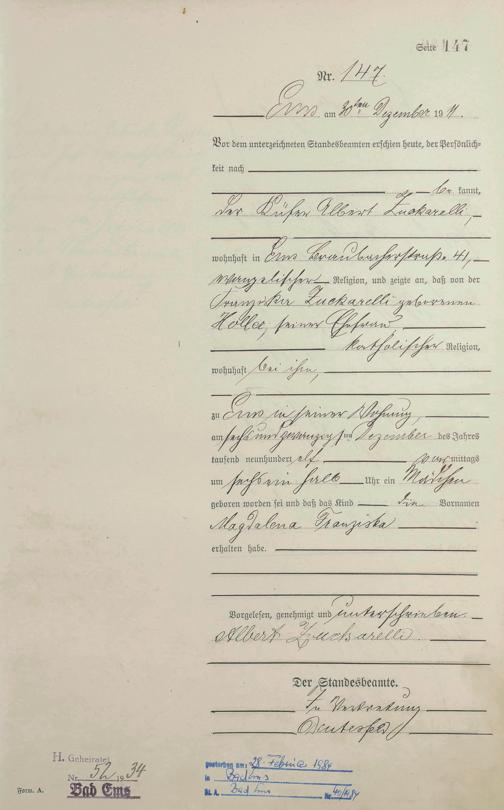 Seite 147
Nr. 147.
Ems am 30ten Dezember 1911.
Vor dem unterzeichneten Standesbeamten erschien heute, der Persönlich-
keit nach
be kannt,
der Küfer Albert Zuckarelli,
wohnhaft in Ems Braubacherstraße 41,
evangelischer Religion, und zeigte an, daß von der
Franziska Zuckarelli geborenen
seiner Ehefrau,
katholischer Religion,
wohnhaft bei ihm,
zu Ems in seiner Wohnung,
am sechsundzwanzigsten Dezember des Jahres
tausend neunhundert elf vor mittags
um sechs ein halb Uhr ein Mädchen
geboren worden sei und daß das Kind die Vornamen
Magdalena Franziska
erhalten habe.
Vorgelesen, genehmigt und unterschrieben.
Albert Zuckarelli.
Der Standesbeamte.
In Vertretung
H. Geheiratet
Nr. 52 1934
Bad Ems
Form. A.
gestorben am: 28. Februar 1984
in Bad Ems
St. A. Bad Ems Nr.